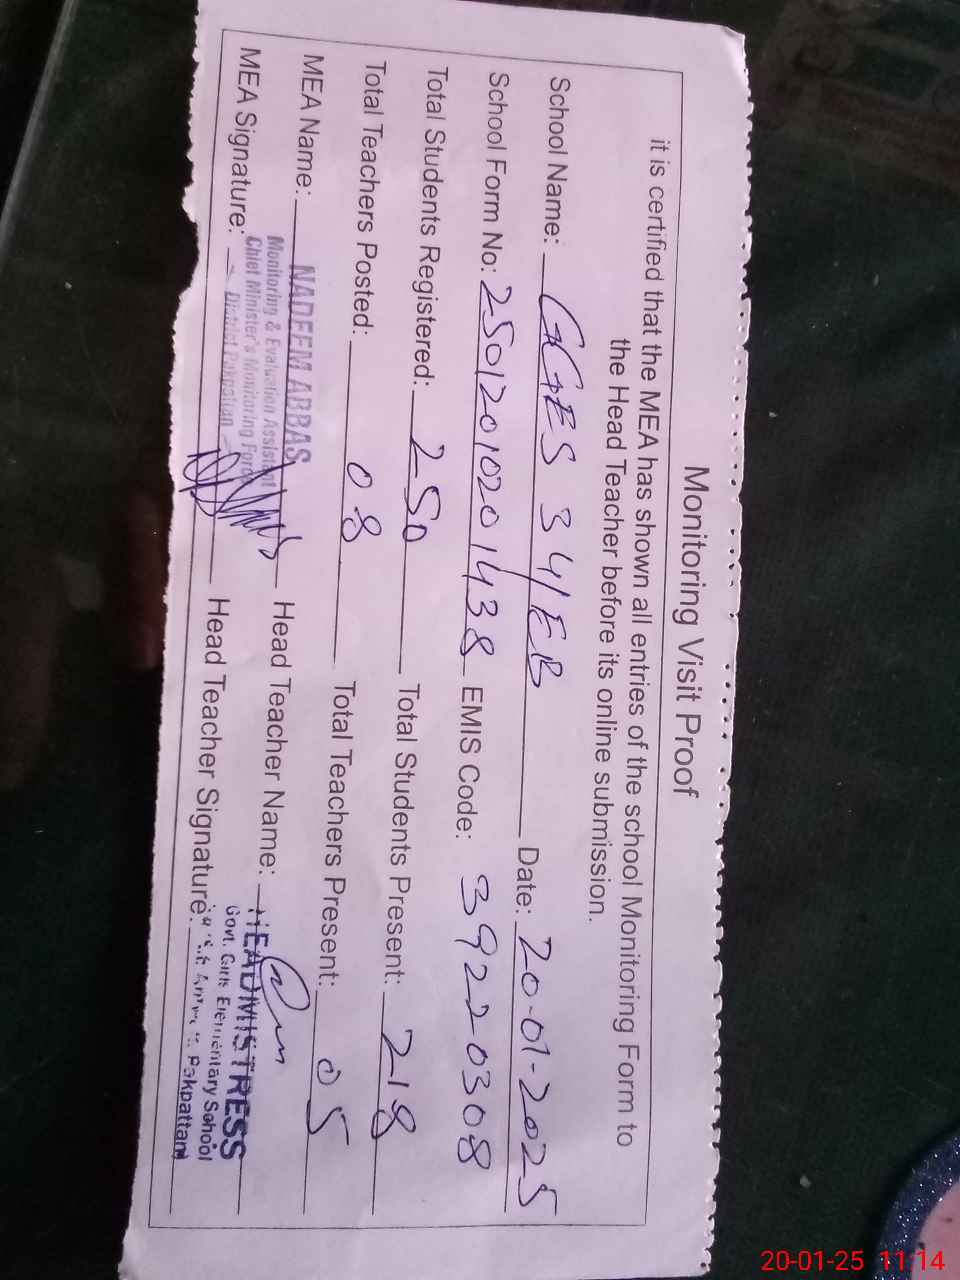 Monitoring Visit Proof
it is certified that the MEA has shown all entries of the school Monitoring Form to
the Head Teacher before its online submission.
School Name: GGES 34/EB Date: 20-01-2025
School Form No: 25012010201438 EMIS Code: 39220308
Total Students Registered: 250 Total Students Present: 218
Total Teachers Posted: 08 Total Teachers Present: 05
MEA Name: NADEEM ABBAS Head Teacher Name: HEADMISTRESS
Monitoring & Evaluation Assistant
Chief Minister's Monitoring Force
District Pakpattan
Govt. Girls Elementary School
Pakpattan
MEA Signature: Head Teacher Signature:
20-01-25 11:14